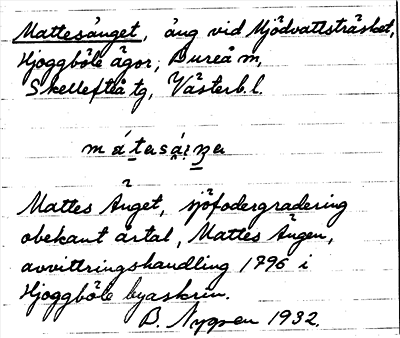 Mattesånget, äng vid Mjödvattsträsket,
Hjoggböle ägor, Bureå m,
Skellefteå tg, Västerb. l.
Mattes Änget, sjöfodergradering
obekant årtal, Mattes Ängen,
avvittringshandling 1796 i
Hjoggböle byaskrin.
B. Nygren 1932.